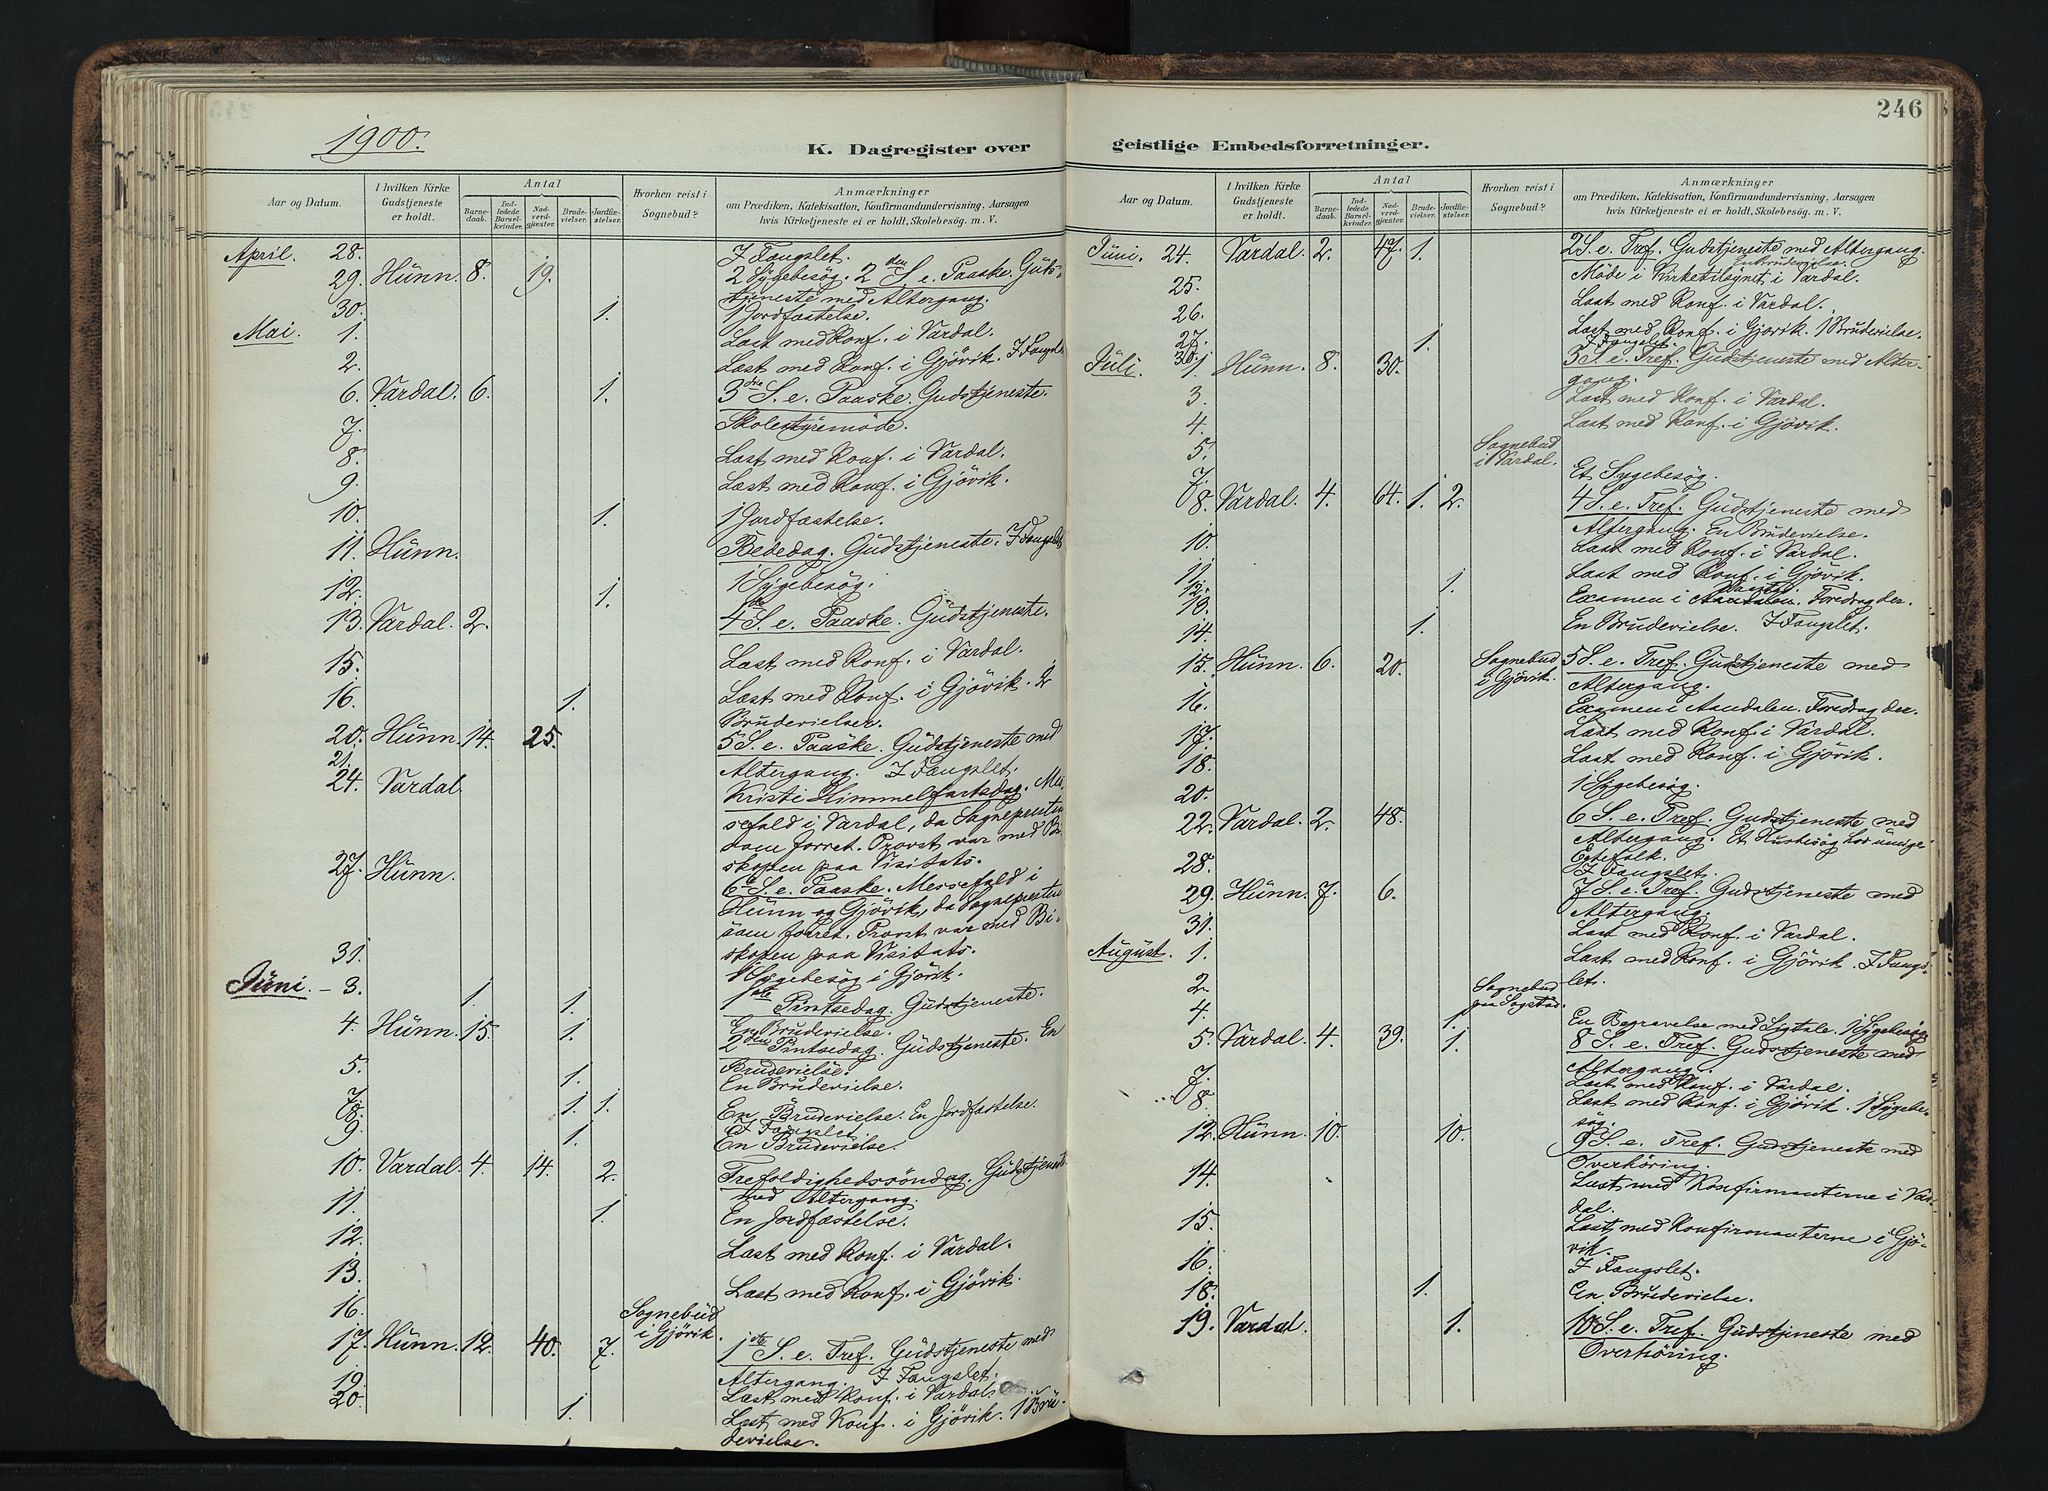 246
1900.
K. Dagregister over geistlige Embedsforretninger.
Aar og Datum. I hvilken Kirke Gudstjeneste er holdt. Antal Barnedaab. Indledede Barselkvinder. Nadverdgjæster. Brudevielser. Jordfæstelser. Hvorhen reist i Sognebud? Anmærkninger om Prædiken, Katekisation, Konfirmandundervisning, Aarsagen hvis Kirketjeneste ei er holdt, Skolebesøg. m. V.
April. 28. I Fangslet.
29. Hunn. 8. 19. 2 Sygebesøg. 2den S. e. Paaske. Guds-
tjeneste med Altergang.
30. 1. 1 Jordfæstelse.
Mai. 1. Læst med Konf. i Vardal.
2. Læst med Konf. i Gjøvik. I Fangslet
6. Vardal. 6. 1. 3die S. e. Paaske. Gudstjeneste.
7. Skolestyremøde.
8. Læst med Konf. i Vardal.
9. Læst med Konf. i Gjøvik.
10. 1. 1 Jordfæstelse.
11. Hunn. Bededag. Gudstjeneste. I Fangslet
12. 1. 1 Sygebesøg.
13. Vardal. 2. 4de S. e. Paaske. Gudstjeneste.
15. Læst med Konf. i Vardal.
16. 1. Læst med Konf. i Gjøvik. 2
Brudevielser.
20. Hunn. 14. 25. 5 S. e. Paaske. Gudstjeneste med
21. Altergang. I Fangslet.
24. Vardal Kristi Himmelfartsdag. Mes-
sefald i Vardal, da Sognepresten
som forret. Provst var med Bi-
skopen paa Visitats.
27. Hunn. 6te S. e. Paaske. Messefald i
Hunn og Gjøvik, da Sognepresten
som forret. Provst var med Bi-
skopen paa Visitats.
31. 1 Sygebesøg i Gjøvik.
Juni. - 3. 1. 1. 1ste Pintsedag. Gudstjeneste.
En Brudevielse.
4. Hunn. 15. 1. 2den Pintsedag. Gudstjeneste. En
Brudevielse.
5. 1. En Brudevielse.
7. 1. 1. En Brudevielse. En Jordfæstelse.
8. I Fangslet
9. 1. En Brudevielse.
10. Vardal. 4. 14. 2. Trefoldighedssøndag. Gudstjeneste
med Altergang.
11. 1. En Jordfæstelse.
12. Læst med Konf. i Vardal.
13. Læst med Konf. i Gjøvik.
16. Sognebud
i Gjøvik.
17. Hunn. 12. 40. 7. 1ste S. e. Tref. Gudstjeneste med
Altergang. I Fangslet.
19. Læst med Konf. i Vardal.
20. 1. Læst med Konf. i Gjøvik. 1 Bru-
devielse.
Aar og Datum. I hvilken Kirke Gudstjeneste er holdt. Antal Barnedaab. Indledede Barselkvinder. Nadverdgjæster. Brudevielser. Jordfæstelser. Hvorhen reist i Sognebud? Anmærkninger om Prædiken, Katekisation, Konfirmandundervisning, Aarsagen hvis Kirketjeneste ei er holdt, Skolebesøg. m. V.
Juni. 24. Vardal. 2. 47. 1. 2 S. e. Tref. Gudstjeneste med Altergang.
En Brudevielse.
25. Møde i Kirketilsynet i Vardal.
26. Læst med Konf. i Vardal.
27. 1. Læst med Konf. i Gjøvik. 1 Brudevielse.
30. I Fangslet.
Juli. 1. Hunn. 8. 30. 3 S. e. Tref. Gudstjeneste med Alter-
gang.
3. Læst med Konf. i Vardal.
4. Læst med Konf. i Gjøvik.
5. Sognebud
i Vardal.
7. Et Sygebesøg.
8. Vardal. 4. 64. 1. 2. 4 S. e. Tref. Gudstjeneste med
Altergang. En Brudevielse.
10. Læst med Konf. i Vardal.
11. 1. Læst med Konf. i Gjøvik.
12.
13. Examen i Foredrag der.
14. 1. En Brudevielse. I Fangslet.
15. Hunn. 6. 20. Sognebud
i Gjøvik. 5 S. e. Tref. Gudstjeneste med
Altergang.
16. Examen i Aandalen. Foredrag der.
17. Læst med Konf. i Vardal.
18. Læst med Konf. i Gjøvik.
20. 1 Sygebesøg.
22. Vardal. 2. 48. 6 S. e. Tref. Gudstjeneste med
Altergang. Et Husbesøg hos uenige
Egtefolk.
28. I Fangslet.
29. Hunn. 7. 6. 7 S. e. Tref. Gudstjeneste med
Altergang.
31. Læst med Konf. i Vardal.
August. 1. Læst med Konf. i Gjøvik. I Fangs-
let.
2. Sognebud
paa Sogstad.
4. 1. En Begravelse med Ligtale. 1 Sygebesøg
5. Vardal. 4. 39. 1. 8 S. e. Tref. Gudstjeneste med
Altergang.
7. Læst med Konf. i Vardal.
8. Læst med Konf. i Gjøvik. 1 Sygebe-
søg.
12. Hunn. 10. 10. 9 S. e. Tref. Gudstjeneste med
Overhøring.
14. Læst med Konfirmanterne i Var-
dal.
15. Læst med Konfirmanterne i Gjø-
vik.
16. I Fangslet.
18. 1. En Brudevielse.
19. Vardal. 1. 10 S. e. Tref. Gudstjeneste med
Overhøring.